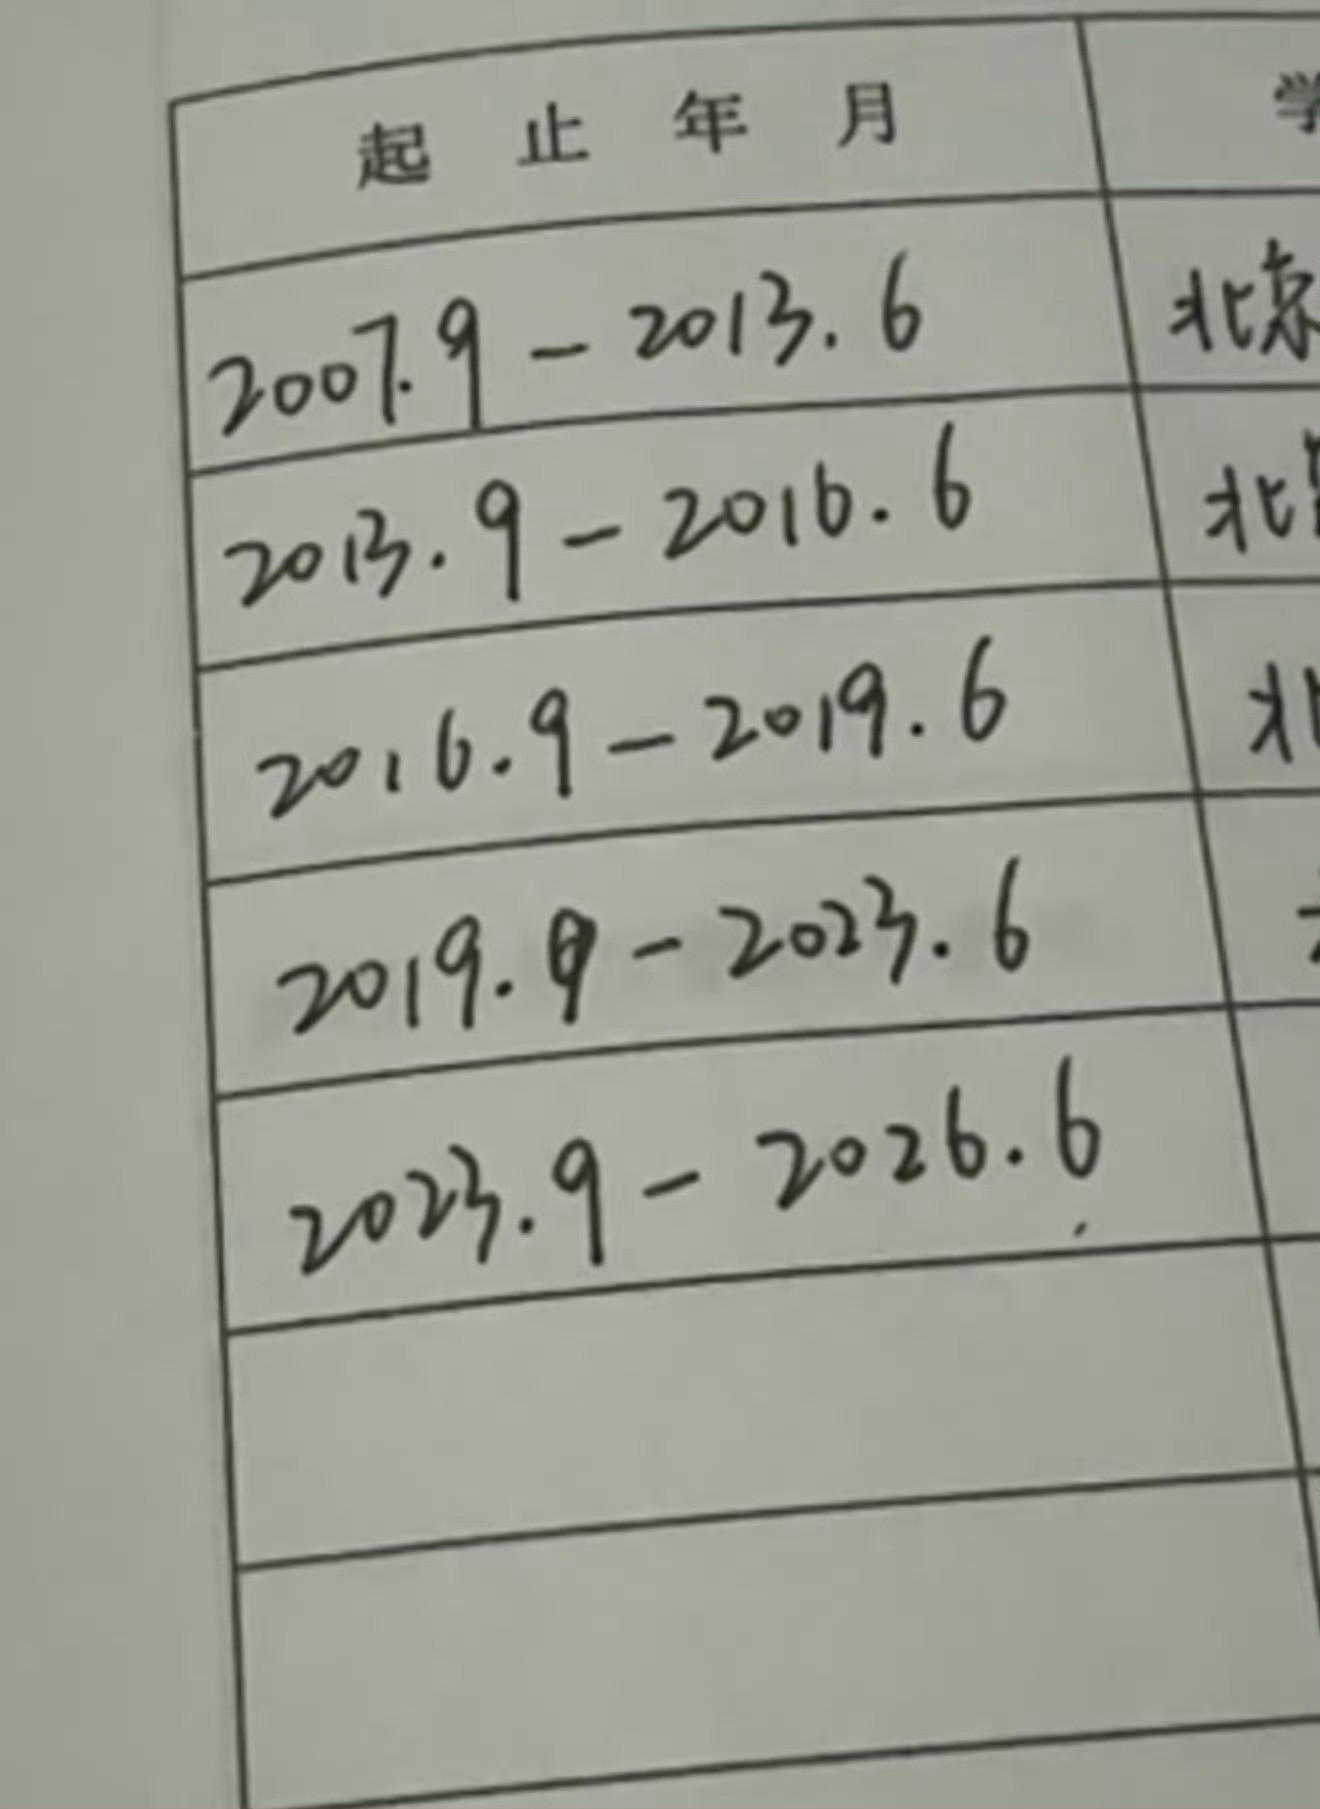 起止年月 学
2007.9-2013.6 北京
2013.9-2016.6 北
2016.9-2019.6 北
2019.9-2023.6
2023.9-2026.6